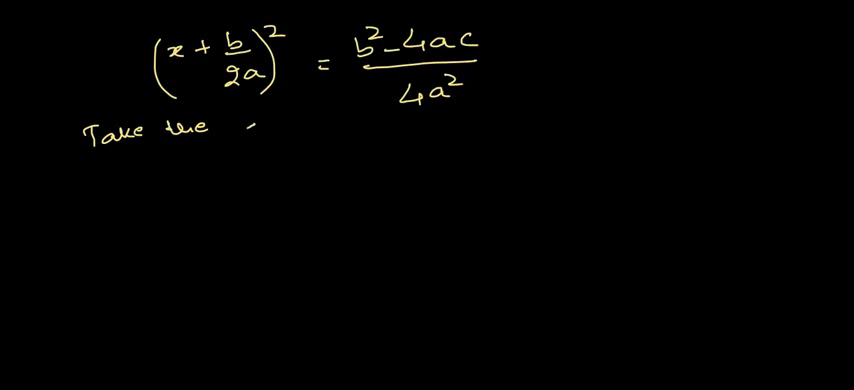 (x + b/2a)² = b² - 4ac / 4a²
Take the